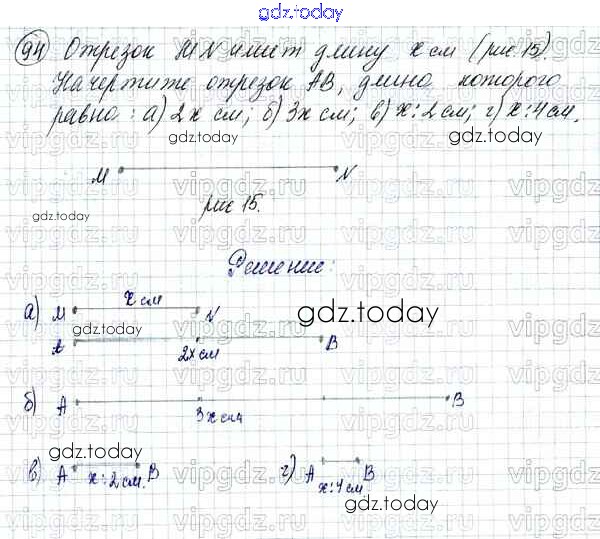 gdz.today
94 Отрезок MN имеет длину x см (рис. 15).
Начертите отрезок AB, длина которого
равна: а) 2x см; б) 3x см; в) x:2 см; г) x:4 см.
gdz.today
gdz.today
M N
рис 15.
gdz.today
Решение:
а) M x см N
gdz.today
gdz.today
A 2x см B
б) A 3x см B
gdz.today
в) A x:2 см. B
г) A x:4 см B
gdz.today
vipgdz.ru